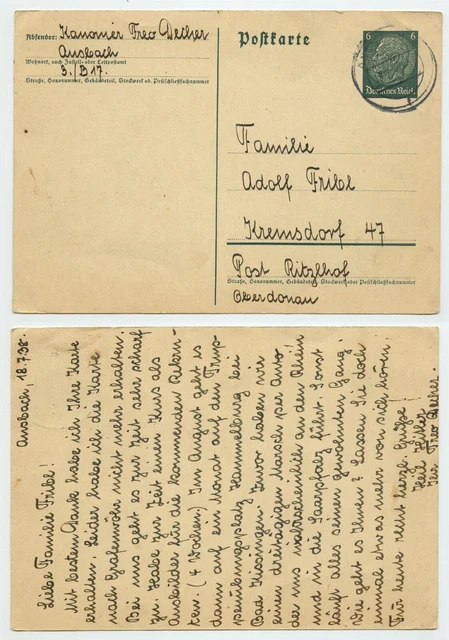 Absender: Kanonier Theo Decher
Ansbach
Wohnort, auch Zustell- oder Leitpostamt
3./B 17.
Straße, Hausnummer, Gebäudeteil, Stockwerk od. Postschließfachnummer
Postkarte
6 6
Deutsches Reich
Familie
Adolf Fribl
Kremsdorf 47
Post Ritzlhof
Straße, Hausnummer, Gebäudeteil, Stockwerk oder Postschließfachnummer
Oberdonau
Ansbach, 18.7.38.
Liebe Familie Fribl!
Mit bestem Dank habe ich Ihre Karte
erhalten. Leider habe ich die Karte
nach Grafenwöhr nicht mehr erhalten.
Bei uns geht es zur Zeit sehr scharf
zu. Habe zur Zeit einen Kurs als
Ausbilder für die kommenden Rekru-
ten. (4 Wochen.) Im August geht es
dann auf ein Monat auf den Trup-
penübungsplatz Hammelburg bei
Bad Kissingen. Zuvor haben wir
einen dreitägigen Marsch per Auto
der uns wahrscheinlich an den Rhein
und in die Saarpfalz führt. Sonst
läuft alles seinen gewohnten Gang.
Wie geht es Ihnen? Lassen Sie doch
einmal etwas mehr von sich hören!
Für heute recht herzl. Grüße!
Heil Hitler!
Ihr Theo Decher.